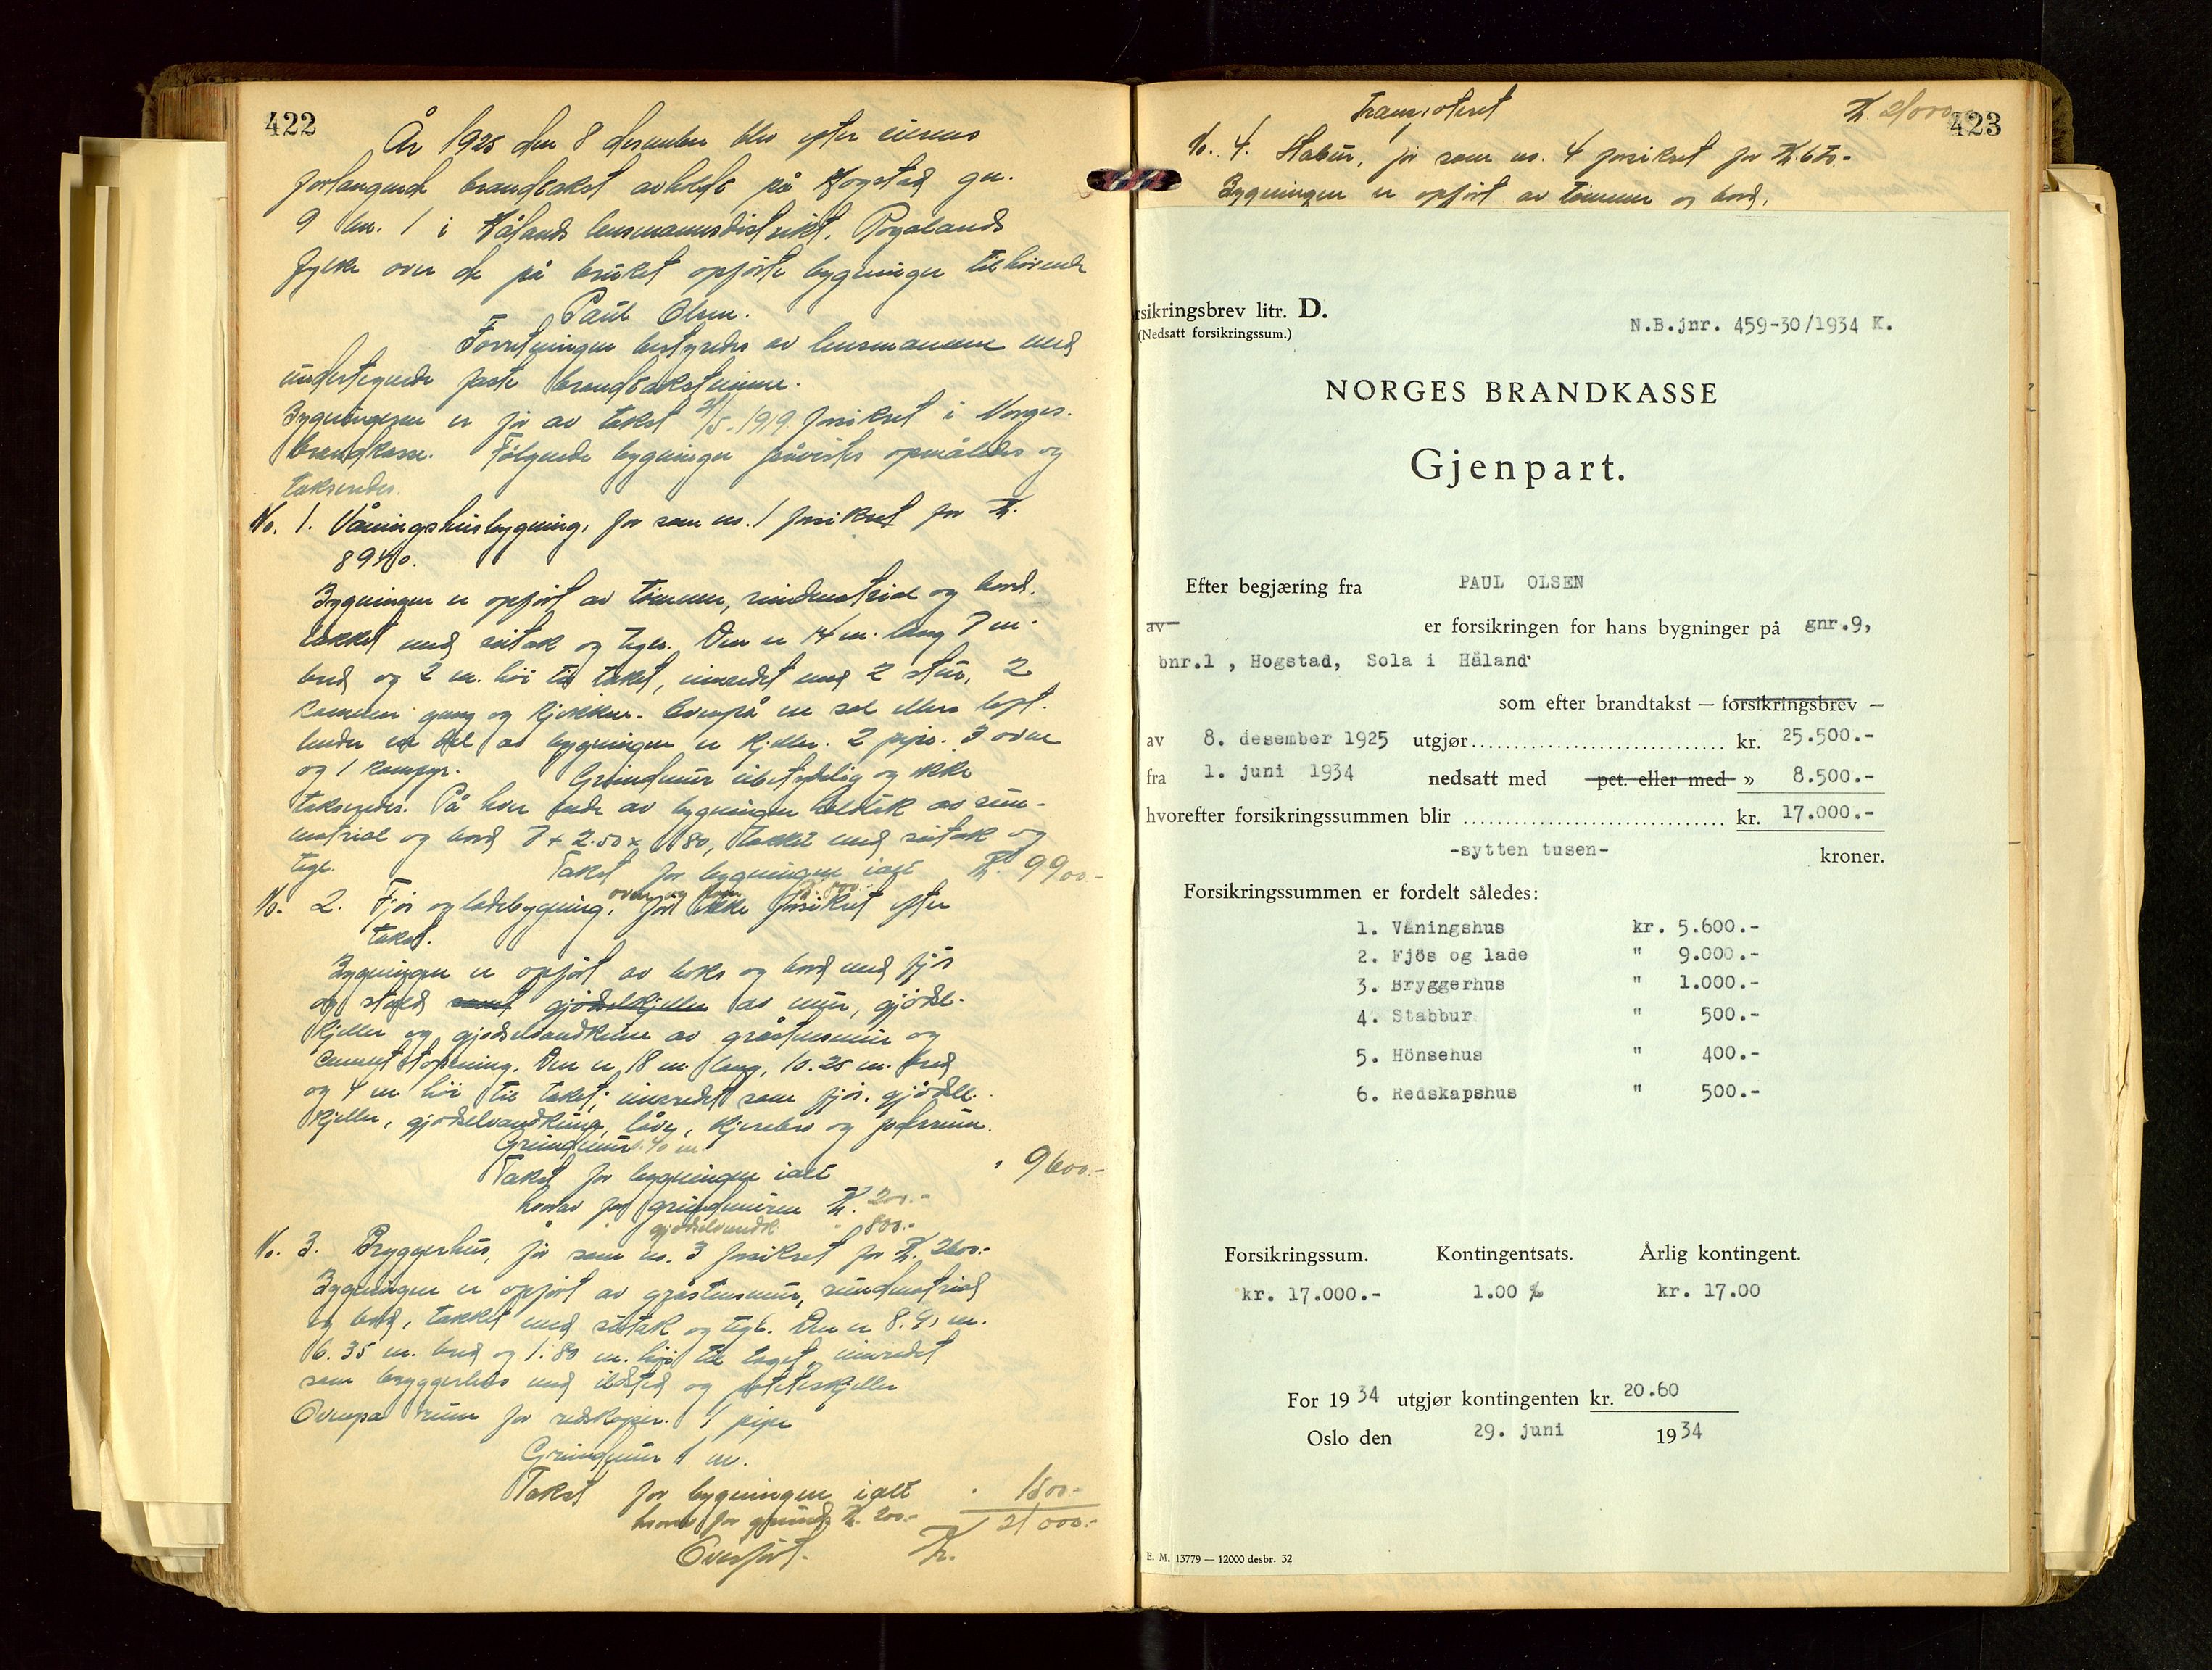 422
År 1925 den 8 desember blev efter eierens
forlangende brandtakst avholdt på Hogstad gn.
9 bn. 1 i Hålands lensmannsdistrikt, Rogalands
fylke over de på bruket opførte bygninger tilhørende
Paul Olsen.
Forretningen bestyredes av lensmannen med
undertegnede faste brandtakstmenn.
Bygningene er før av takst 21/5.1919 forsikret i Norges
brandkasse. Følgende bygninger påvistes opmåltes og
takseredes.
No. 1. Våningshusbygning, før som no. 1 forsikret for Kr.
8940.
Bygningen er opført av tømmer, bindmatrial og bord.
tækket med sutak og tegl. Den er 14 m. lang 7 m.
bred og 2 m. høi til taket, innredet med 2 stuer, 2
kammer gang og kjøkken. Ovenpå en sal ellers loft.
Under en del av bygningen er kjeller. 2 piper. 3 ovne
og 1 komfyr. Grundmur ubetydelig og ikke
takseredes. På hver ende av bygningen
matrial og bord 7 x 2.50 x 1.80, tækket med sutak og
tegl. Takst for bygningen ialt Kr. 9900.-
No. 2. Fjøs og ladebygning, før ikke forsikret efter
takst.
Bygningen er opført av boks og bord med fjøs
og stald samt gjødselkjeller av mur, gjødsel-
kjeller og gjødselvandkum av gråstensmur og
cementstøpning. Den er 18 m. lang, 10.25 m. bred
og 4 m høi til taket; innredet som fjøs. gjødsel-
kjeller, gjødselvandkum, låve, kjørebro og forrum.
Grundmur 1.40 m.
Takst for bygningen ialt " 9600.-
hvorav for grundmuren Kr. 200.-
" " gjødselvandk. " 800.-
No. 3. Bryggerhus, før som no. 3 forsikret for Kr. 2600.-
Bygningen er opført av gråstensmur, bindmatrial
og bord, tækket med sutak og tegl. Den er 8.90 m.
6.35 m. bred og 1.80 m. høi til taget, innredet
som bryggerhus med ildsted og potetkjeller
Ovenpå rum for redskaper. 1 pipe
Grundmur 1 m.
Takst for bygningen ialt " 1500.-
hvorav for grundm. Kr. 200.-
Overført. Kr. 21000.-
423
Transporteret Kr. 21000
No. 4. Stabur, før som no. 4 forsikret for Kr. 670.-
Bygningen er opført av tømmer og bord,
rsikringsbrev litr. D.
(Nedsatt forsikringssum.)
N.B.jnr. 459-30/1934 K.
NORGES BRANDKASSE
Gjenpart.
Efter begjæring fra PAUL OLSEN
av er forsikringen for hans bygninger på gnr.9,
bnr.1 , Hogstad, Sola i Håland
som efter brandtakst — forsikringsbrev —
av 8. desember 1925 utgjør.............................. kr. 25.500.-
fra 1. juni 1934 nedsatt med pct. eller med » 8.500.-
hvorefter forsikringssummen blir .............................. kr. 17.000.-
-sytten tusen- kroner.
Forsikringssummen er fordelt således:
1. Våningshus kr. 5.600.-
2. Fjös og lade " 9.000.-
3. Bryggerhus " 1.000.-
4. Stabbur " 500.-
5. Hönsehus " 400.-
6. Redskapshus " 500.-
Forsikringssum. Kontingentsats. Årlig kontingent.
kr. 17.000.- 1.00 ‰ kr. 17.00
For 1934 utgjør kontingenten kr. 20.60
Oslo den 29. juni 1934
E. M. 13779 — 12000 desbr. 32